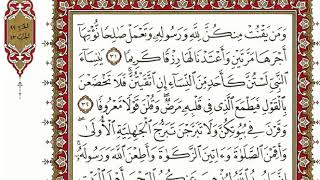 وَمَن يَقْنُتْ مِنكُنَّ لِلَّهِ وَرَسُولِهِ وَتَعْمَلْ صَٰلِحًا نُّؤْتِهَآ
أَجْرَهَا مَرَّتَيْنِ وَأَعْتَدْنَا لَهَا رِزْقًا كَرِيمًا ٣١ يَٰنِسَآءَ
ٱلنَّبِىِّ لَسْتُنَّ كَأَحَدٍ مِّنَ ٱلنِّسَآءِ إِنِ ٱتَّقَيْتُنَّ فَلَا تَخْضَعْنَ
بِٱلْقَوْلِ فَيَطْمَعَ ٱلَّذِى فِى قَلْبِهِۦ مَرَضٌ وَقُلْنَ قَوْلًا مَّعْرُوفًا ٣٢
وَقَرْنَ فِى بُيُوتِكُنَّ وَلَا تَبَرَّجْنَ تَبَرُّجَ ٱلْجَٰهِلِيَّةِ ٱلْأُولَىٰ
وَأَقِمْنَ ٱلصَّلَوٰةَ وَءَاتِينَ ٱلزَّكَوٰةَ وَأَطِعْنَ ٱللَّهَ وَرَسُولَهُۥٓ